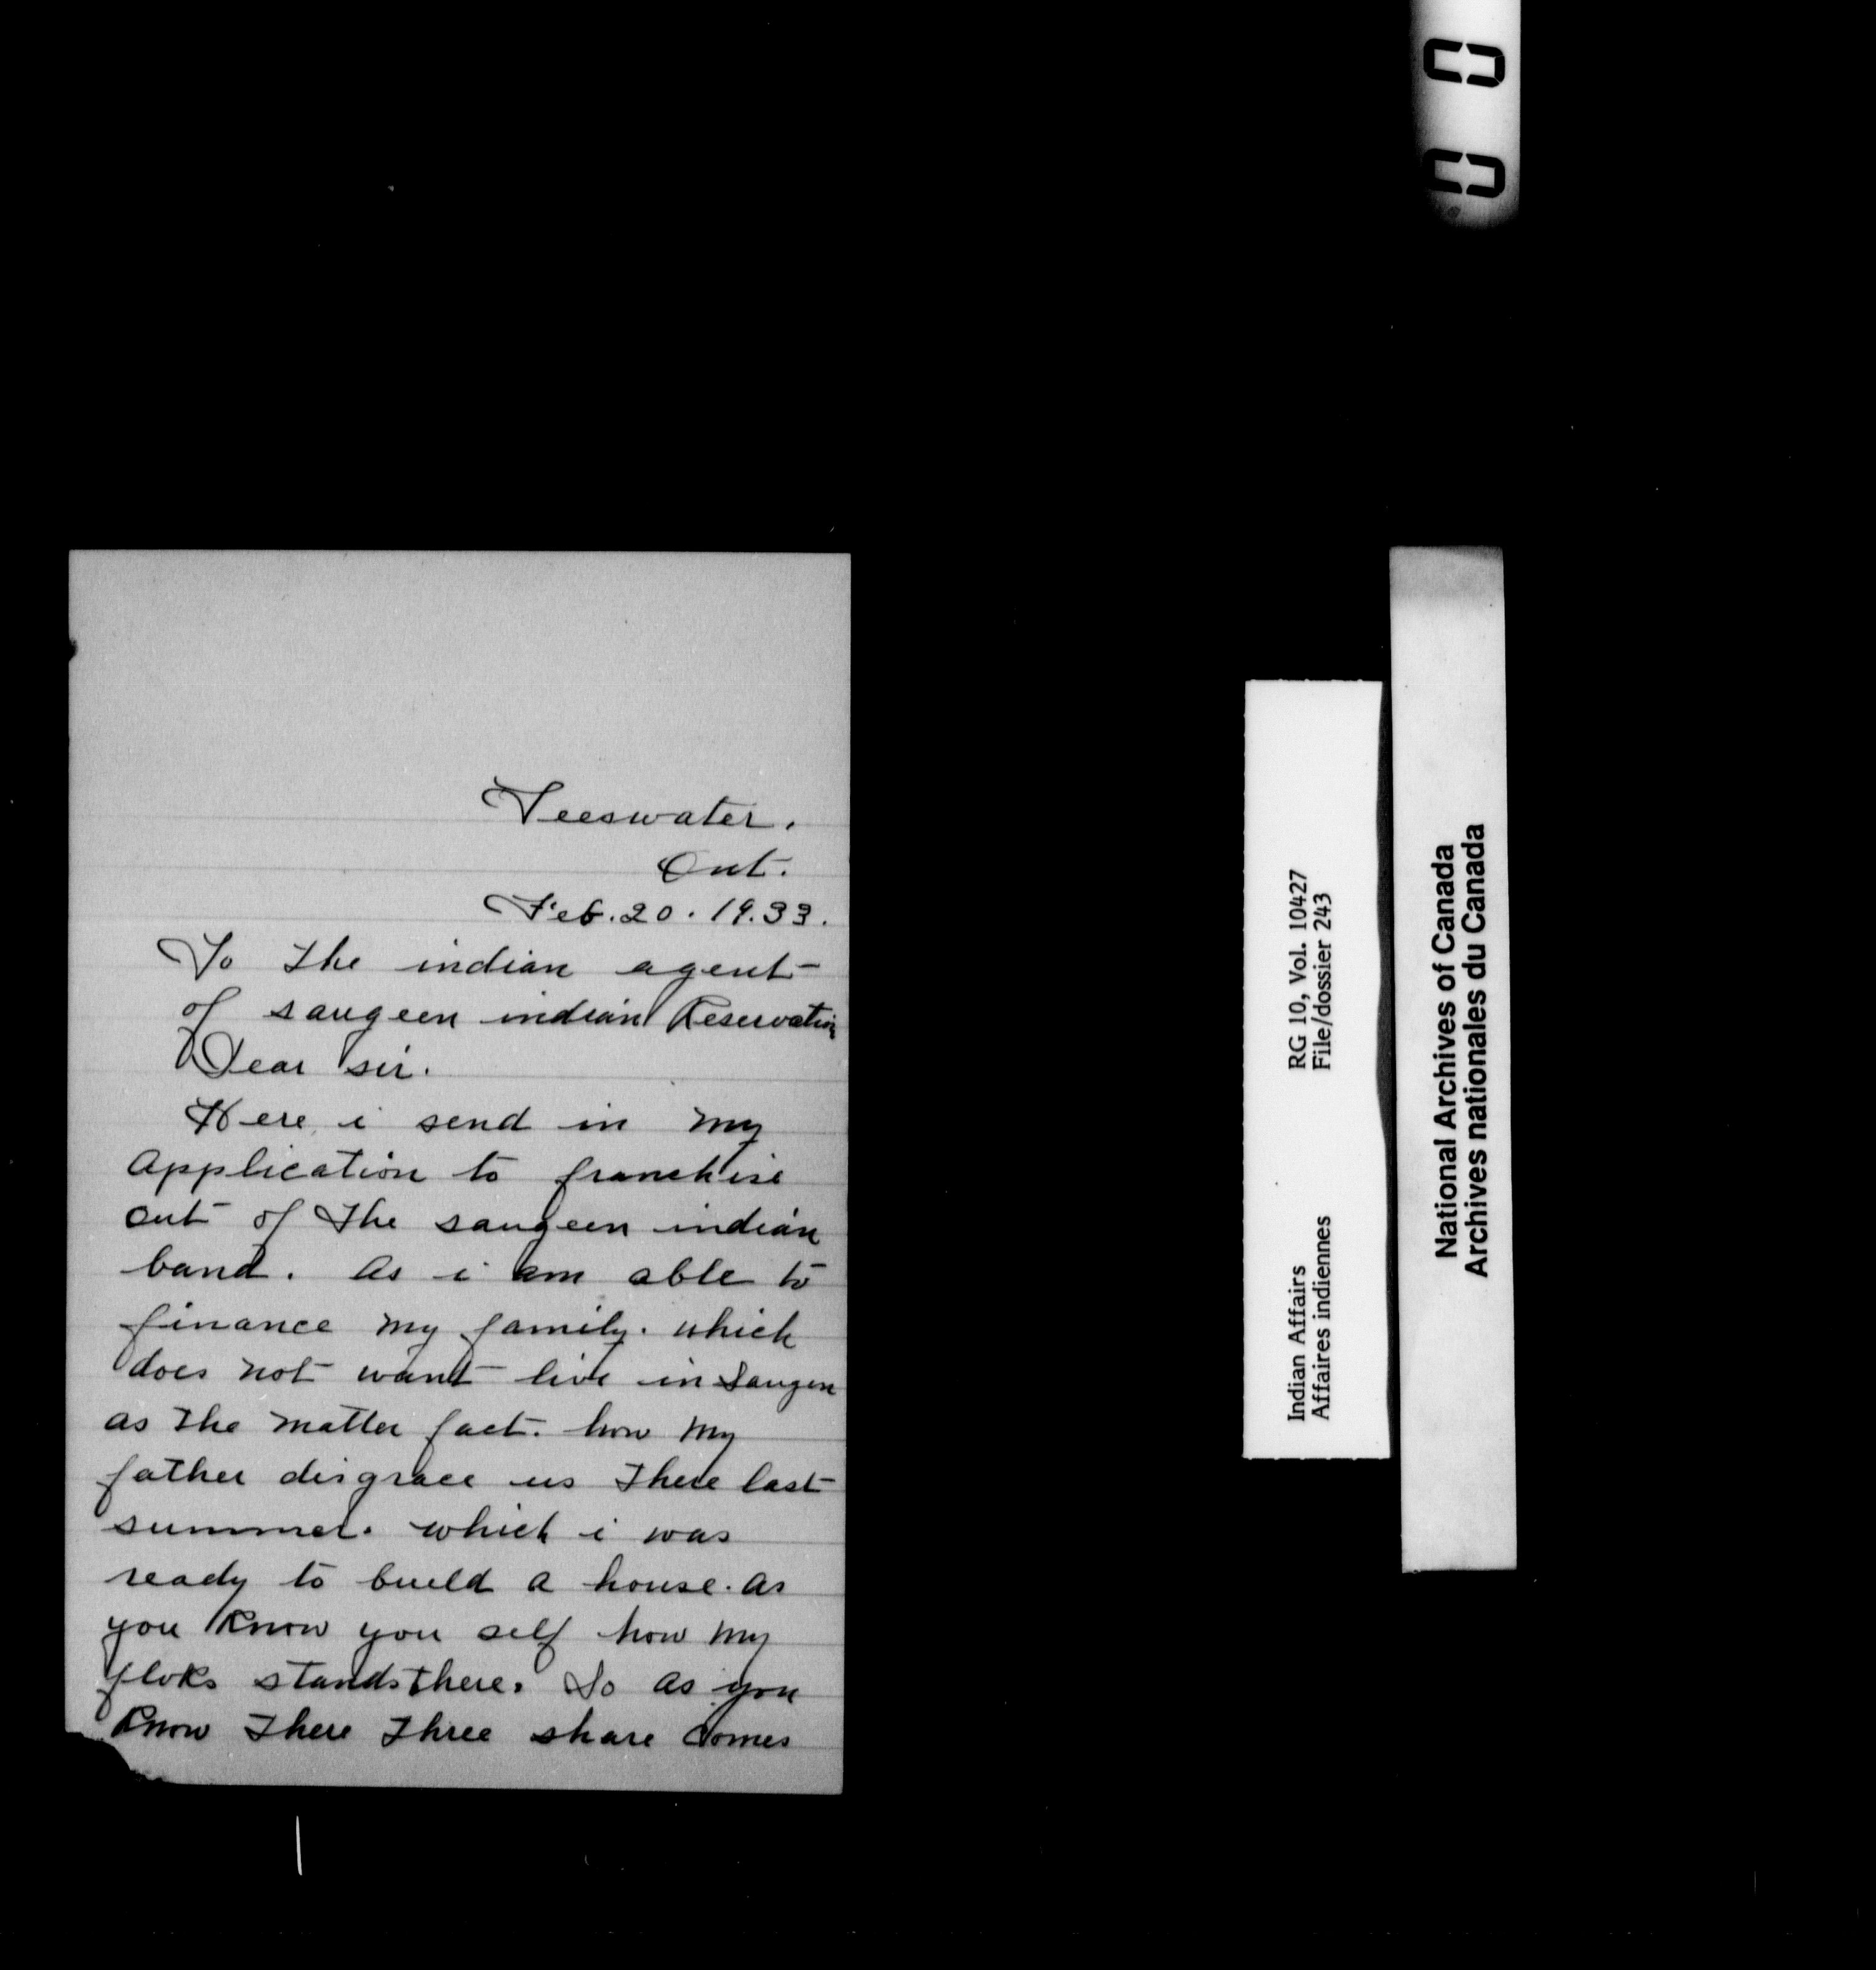 Teeswater.
Ont.
Feb. 20. 19.33.
To The indian agent
of saugeen indian Reservation
Dear sir.
Here i send in my
application to franchise
out of The saugeen indian
band. As i am able to
finance my family. which
does not want live in Saugen
as The matter fact. how my
father disgrace us There last
summer. which i was
ready to build a house. as
you Know you self how my
floks stands there. So as you
Know There Three share comes
RG 10, Vol. 10427
File/dossier 243
Indian Affairs
Affaires indiennes
National Archives of Canada
Archives nationales du Canada
0 0